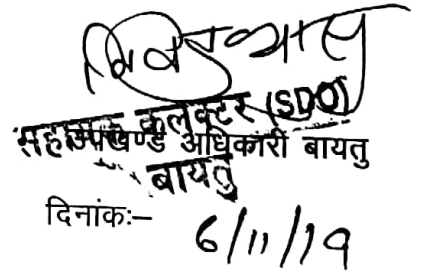 सहायक कलेक्टर (SDO)
उपखण्ड अधिकारी बायतु
बायतु
दिनांक:–
6/11/19